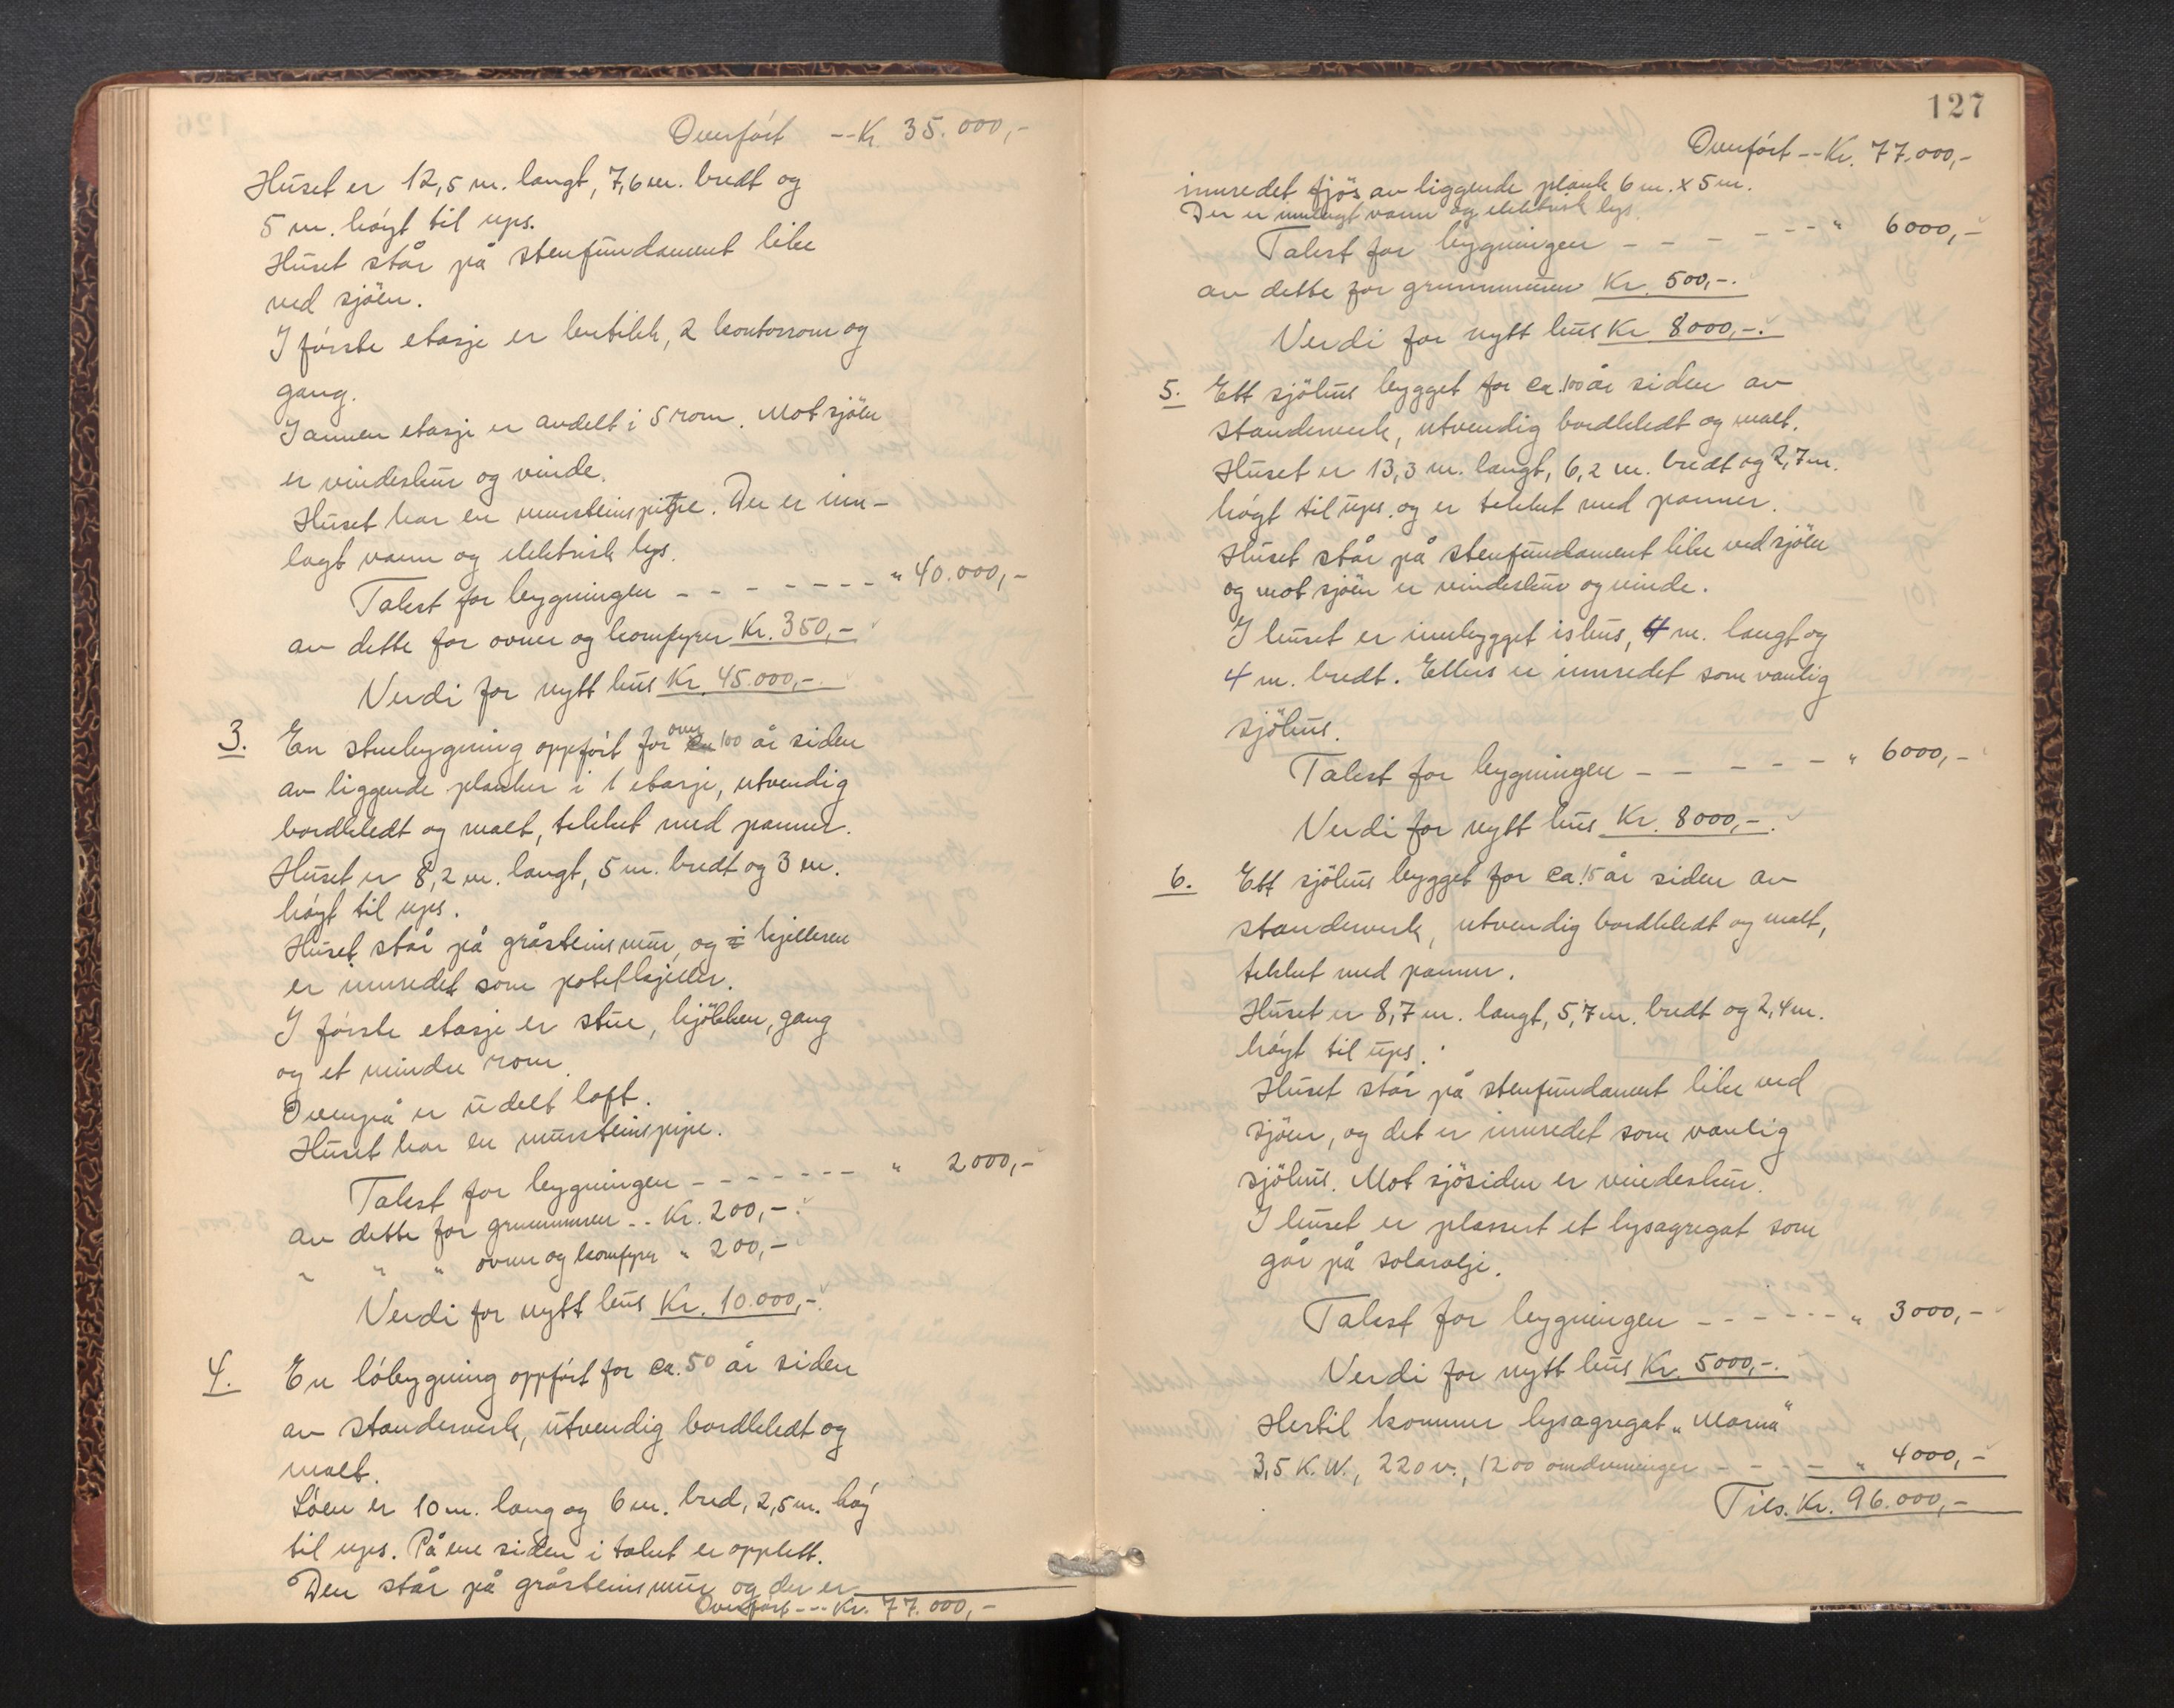 Overfört -- Kr. 35.000,-
Huset er 12,5 m. langt, 7,6 m. bredt og
5 m. höyt til ups.
Huset står på stenfundament like
ved sjöen.
I förste etasje er butikk, 2 kontorrom og
gang.
I annen etasje er avdelt i 5 rom. Mot sjöen
er vindeskur og vinde.
Huset har en mursteinspipe. Der er inn-
lagt vann og elektrisk lys.
Takst for bygningen - - - - - - - " 40.000,-
av dette for ovner og komfyrer Kr. 350,-
Verdi for nytt hus Kr. 45.000,-.
3. En stuebygning oppfört for over 100 år siden
av liggende planker i 1 etasje, utvendig
bordkledt og malt, tekket med panner.
Huset er 8,2 m. langt, 5 m. bredt og 3 m.
höyt til ups.
Huset står på gråsteinsmur, og i kjelleren
er innredet som potetkjeller.
I förste etasje er stue, kjökken, gang
og et mindre rom.
Ovenpå er udelt loft.
Huset har en mursteinspipe.
Takst for bygningen - - - - - - - " 2000,-
av dette for grunnmuren -- Kr. 200,-.
" " " ovner og komfyrer " 200,-
Verdi for nytt hus Kr. 10.000,-.
4. En löbygning oppfört for ca. 50 år siden
av standerverk, utvendig bordkledt og
malt.
Löen er 10 m. lang og 6 m. bred, 2,5 m. höy
til ups. På ene siden i taket er opplett.
Den står på gråsteinsmur og der er
Overfört --- Kr. 77.000,-
127
Overfört -- Kr. 77.000,-
innredet fjös av liggende plank 6 m. x 5 m.
Der er innlagt vann og elektrisk lys.
Takst for bygningen - - - - - - - " 6000,-
av dette for grunnmuren Kr. 500,-.
Verdi for nytt hus Kr. 8000,-.
5. Ett sjöhus bygget for ca. 100 år siden av
standerverk, utvendig bordkledt og malt.
Huset er 13,3 m. langt, 6,2 m. bredt og 2,7 m.
höyt til ups. og er tekket med panner.
Huset står på stenfundament like ved sjöen
og mot sjöen er vindeskur og vinde.
I huset er innbygget ishus, 4 m. langt og
4 m. bredt. Ellers er innredet som vanlig
sjöhus.
Takst for bygningen - - - - - " 6000,-
Verdi for nytt hus Kr. 8000,-.
6. Ett sjöhus bygget for ca. 15 år siden av
standerverk, utvendig bordkledt og malt,
tekket med panner.
Huset er 8,7 m. langt, 5,7 m. bredt og 2,4 m.
höyt til ups.
Huset står på stenfundament like ved
sjöen, og det er innredet som vanlig
sjöhus. Mot sjösiden er vindeskur.
I huset er plassert et lysagregat som
går på solarolje.
Takst for bygningen - - - - - - " 3000,-
Verdi for nytt hus Kr. 5000,-.
Hertil kommer lysagregat „Marna"
3,5 K.W., 220 v., 1200 omdreininger - - - - " 4000,-
Tils. Kr. 96.000,-